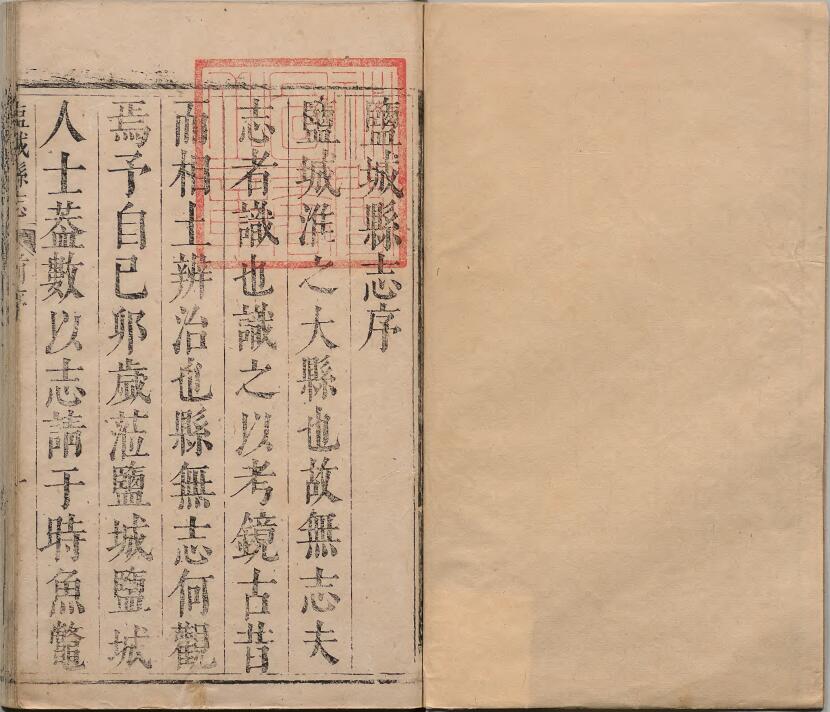 鹽城縣志序
鹽城淮之大縣也故無志夫
志者識也識之以考鏡古昔
而相土辨治也縣無志何觀
焉予自己卯歲蒞鹽城鹽城
人士蓋數以志請于時魚鼈
鹽城縣志 序 一